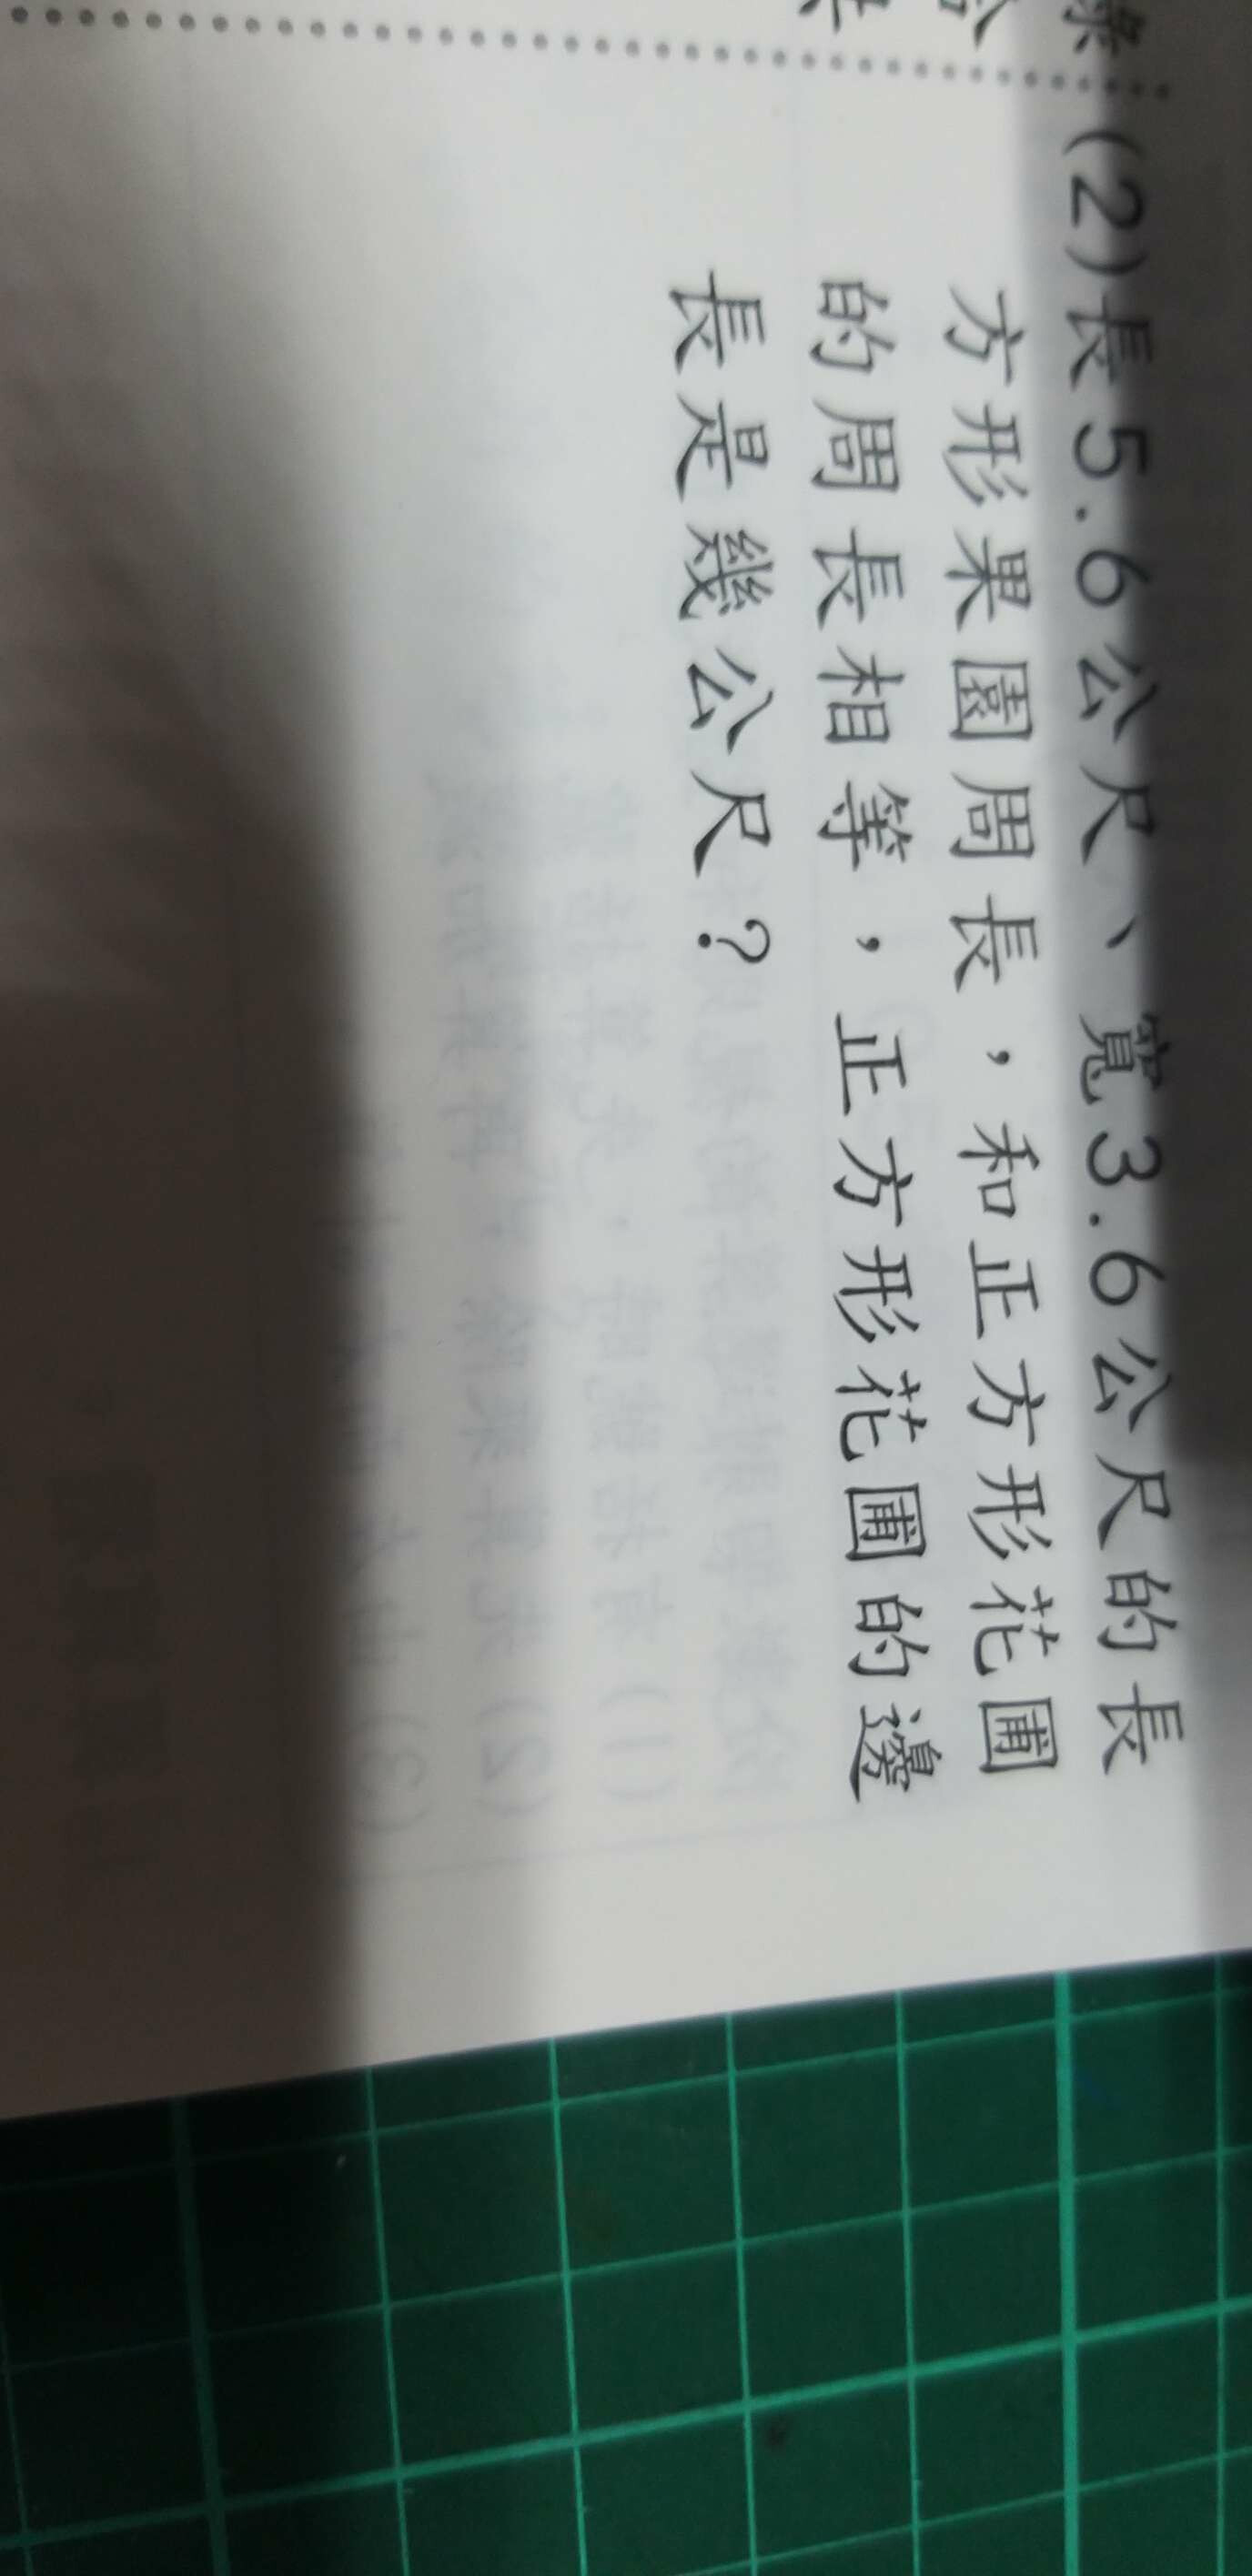 (2)長5.6公尺、寬3.6公尺的長
方形果園周長，和正方形花圃
的周長相等，正方形花圃的邊
長是幾公尺？